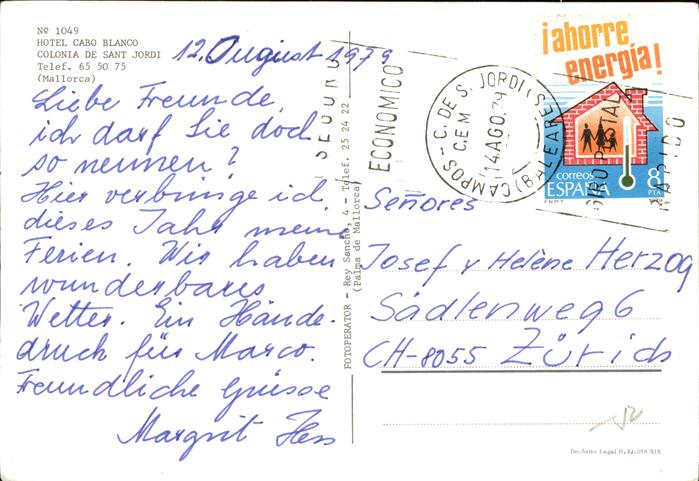 Nº 1049
HOTEL CABO BLANCO
COLONIA DE SANT JORDI
Telef. 65 50 75
(Mallorca)
12. August 1979
Liebe Freunde,
ich darf Sie doch
so nennen?
Hier verbringe ich
dieses Jahr meine
Ferien. Wir haben
wunderbares
Wetter. Ein Hände-
druck für Marco.
Freundliche Grüsse
Margrit Hess
FOTOPERATOR - Rey Sancho, 4 - Telef. 25 24 22
(Palma de Mallorca)
SEGURO
ECONOMICO
GIRO POSTAL
RAPIDO
CAMPOS - C. DE S. JORDI (S.E.)
C.E.M
14 AGO. 79
(BALEARES)
¡ahorre
energía!
correos
ESPAÑA
8
PTA
F.N.M.T.
Señores
Josef y Helene Herzog
Sädlenweg 6
CH-8055 Zürich
Depósito Legal B.32.056 XIX